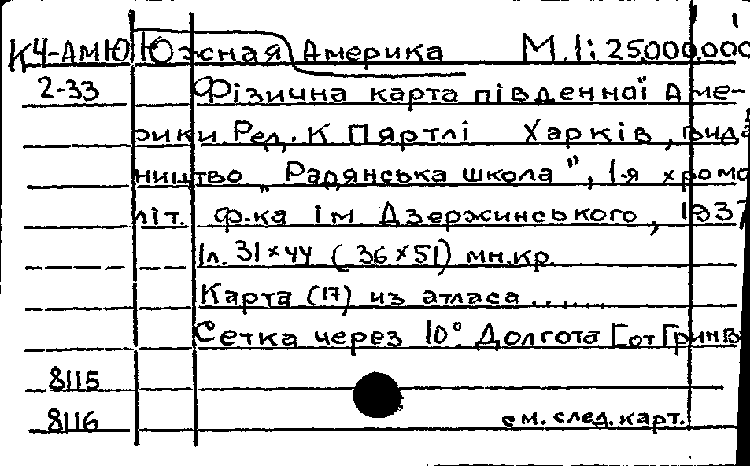 К4-АМЮ Южная Америка М.1:25.000.000
2-33 Фізична карта південної Аме-
рики. Ред. К Пяртлі Харків, вида
ництво „Радянська школа", 1-я хромо
літ. ф-ка ім Дзержинського, 1937
1л. 31×44 (36×51) мн.кр.
Карта (17) из атласа ......
Сетка через 10° Долгота Г от Гринв
8115
8116 см. след. карт.